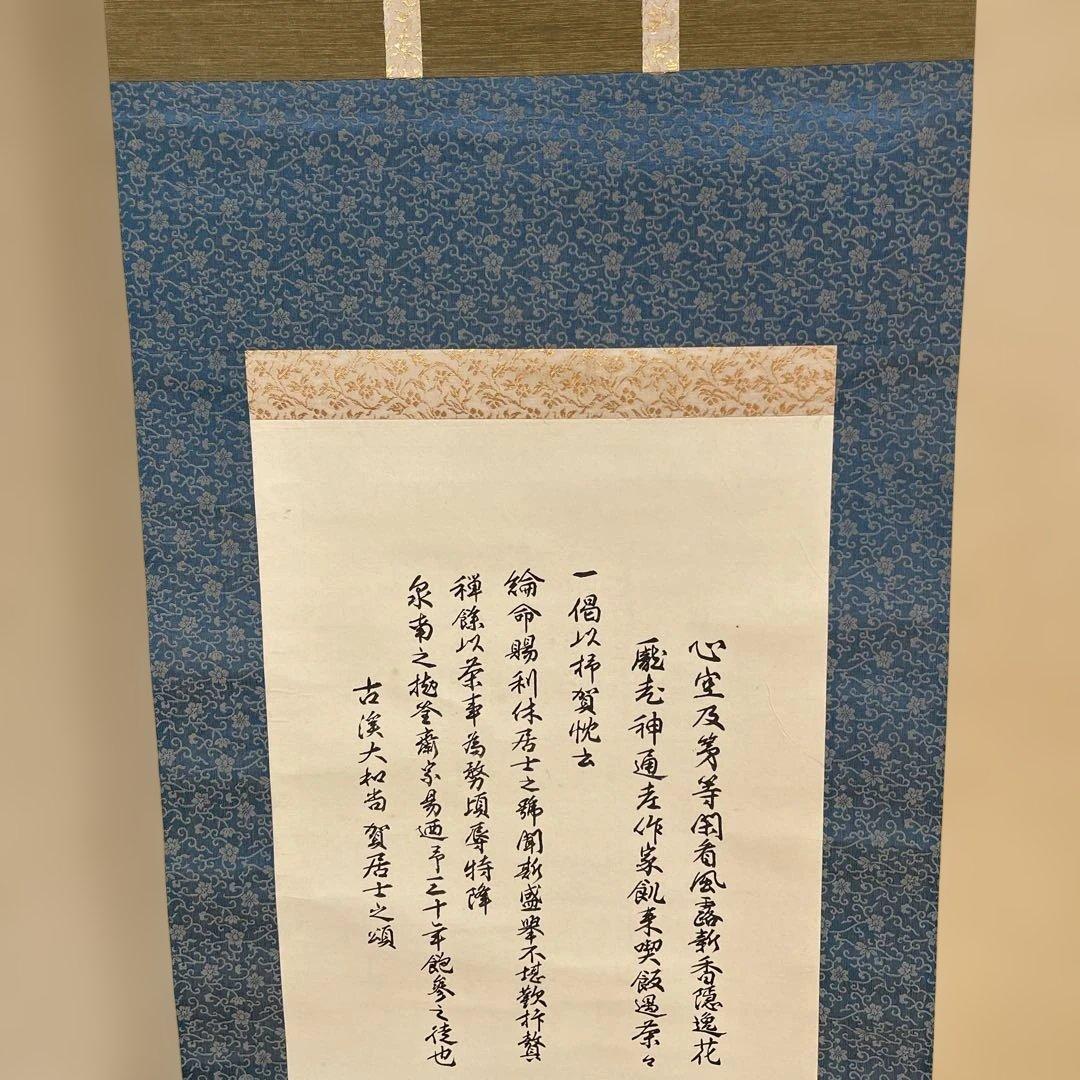 古溪大和尚賀居士之頌
泉南之抛筌齋宗易廼予三十年飽參之徒也
禅餘以茶事為務頃辱特降
綸命賜利休居士之號聞斯盛舉不堪歡抃贅
一偈以抒賀忱云
龐老神通老作家飢来喫飯遇茶々
心空及第等閑看風露新香隱逸花